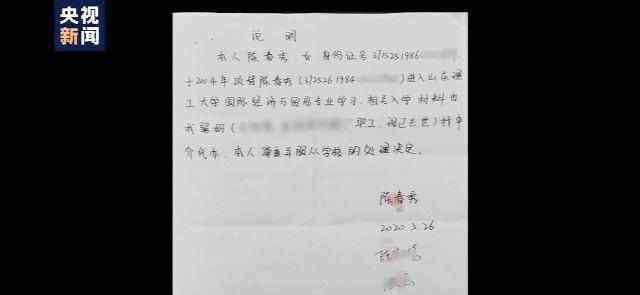 央视
新闻
说明
本人陈春秀 女 身份证号 3715251986
于2004年顶替陈春秀(3725261984)进入山东理
工大学国际经济与贸易专业学习.相关入学材料由
我舅妈(职工,现已去世)找中
介代办.本人尊重并服从学校的处理决定。
陈春秀
2020 3.26